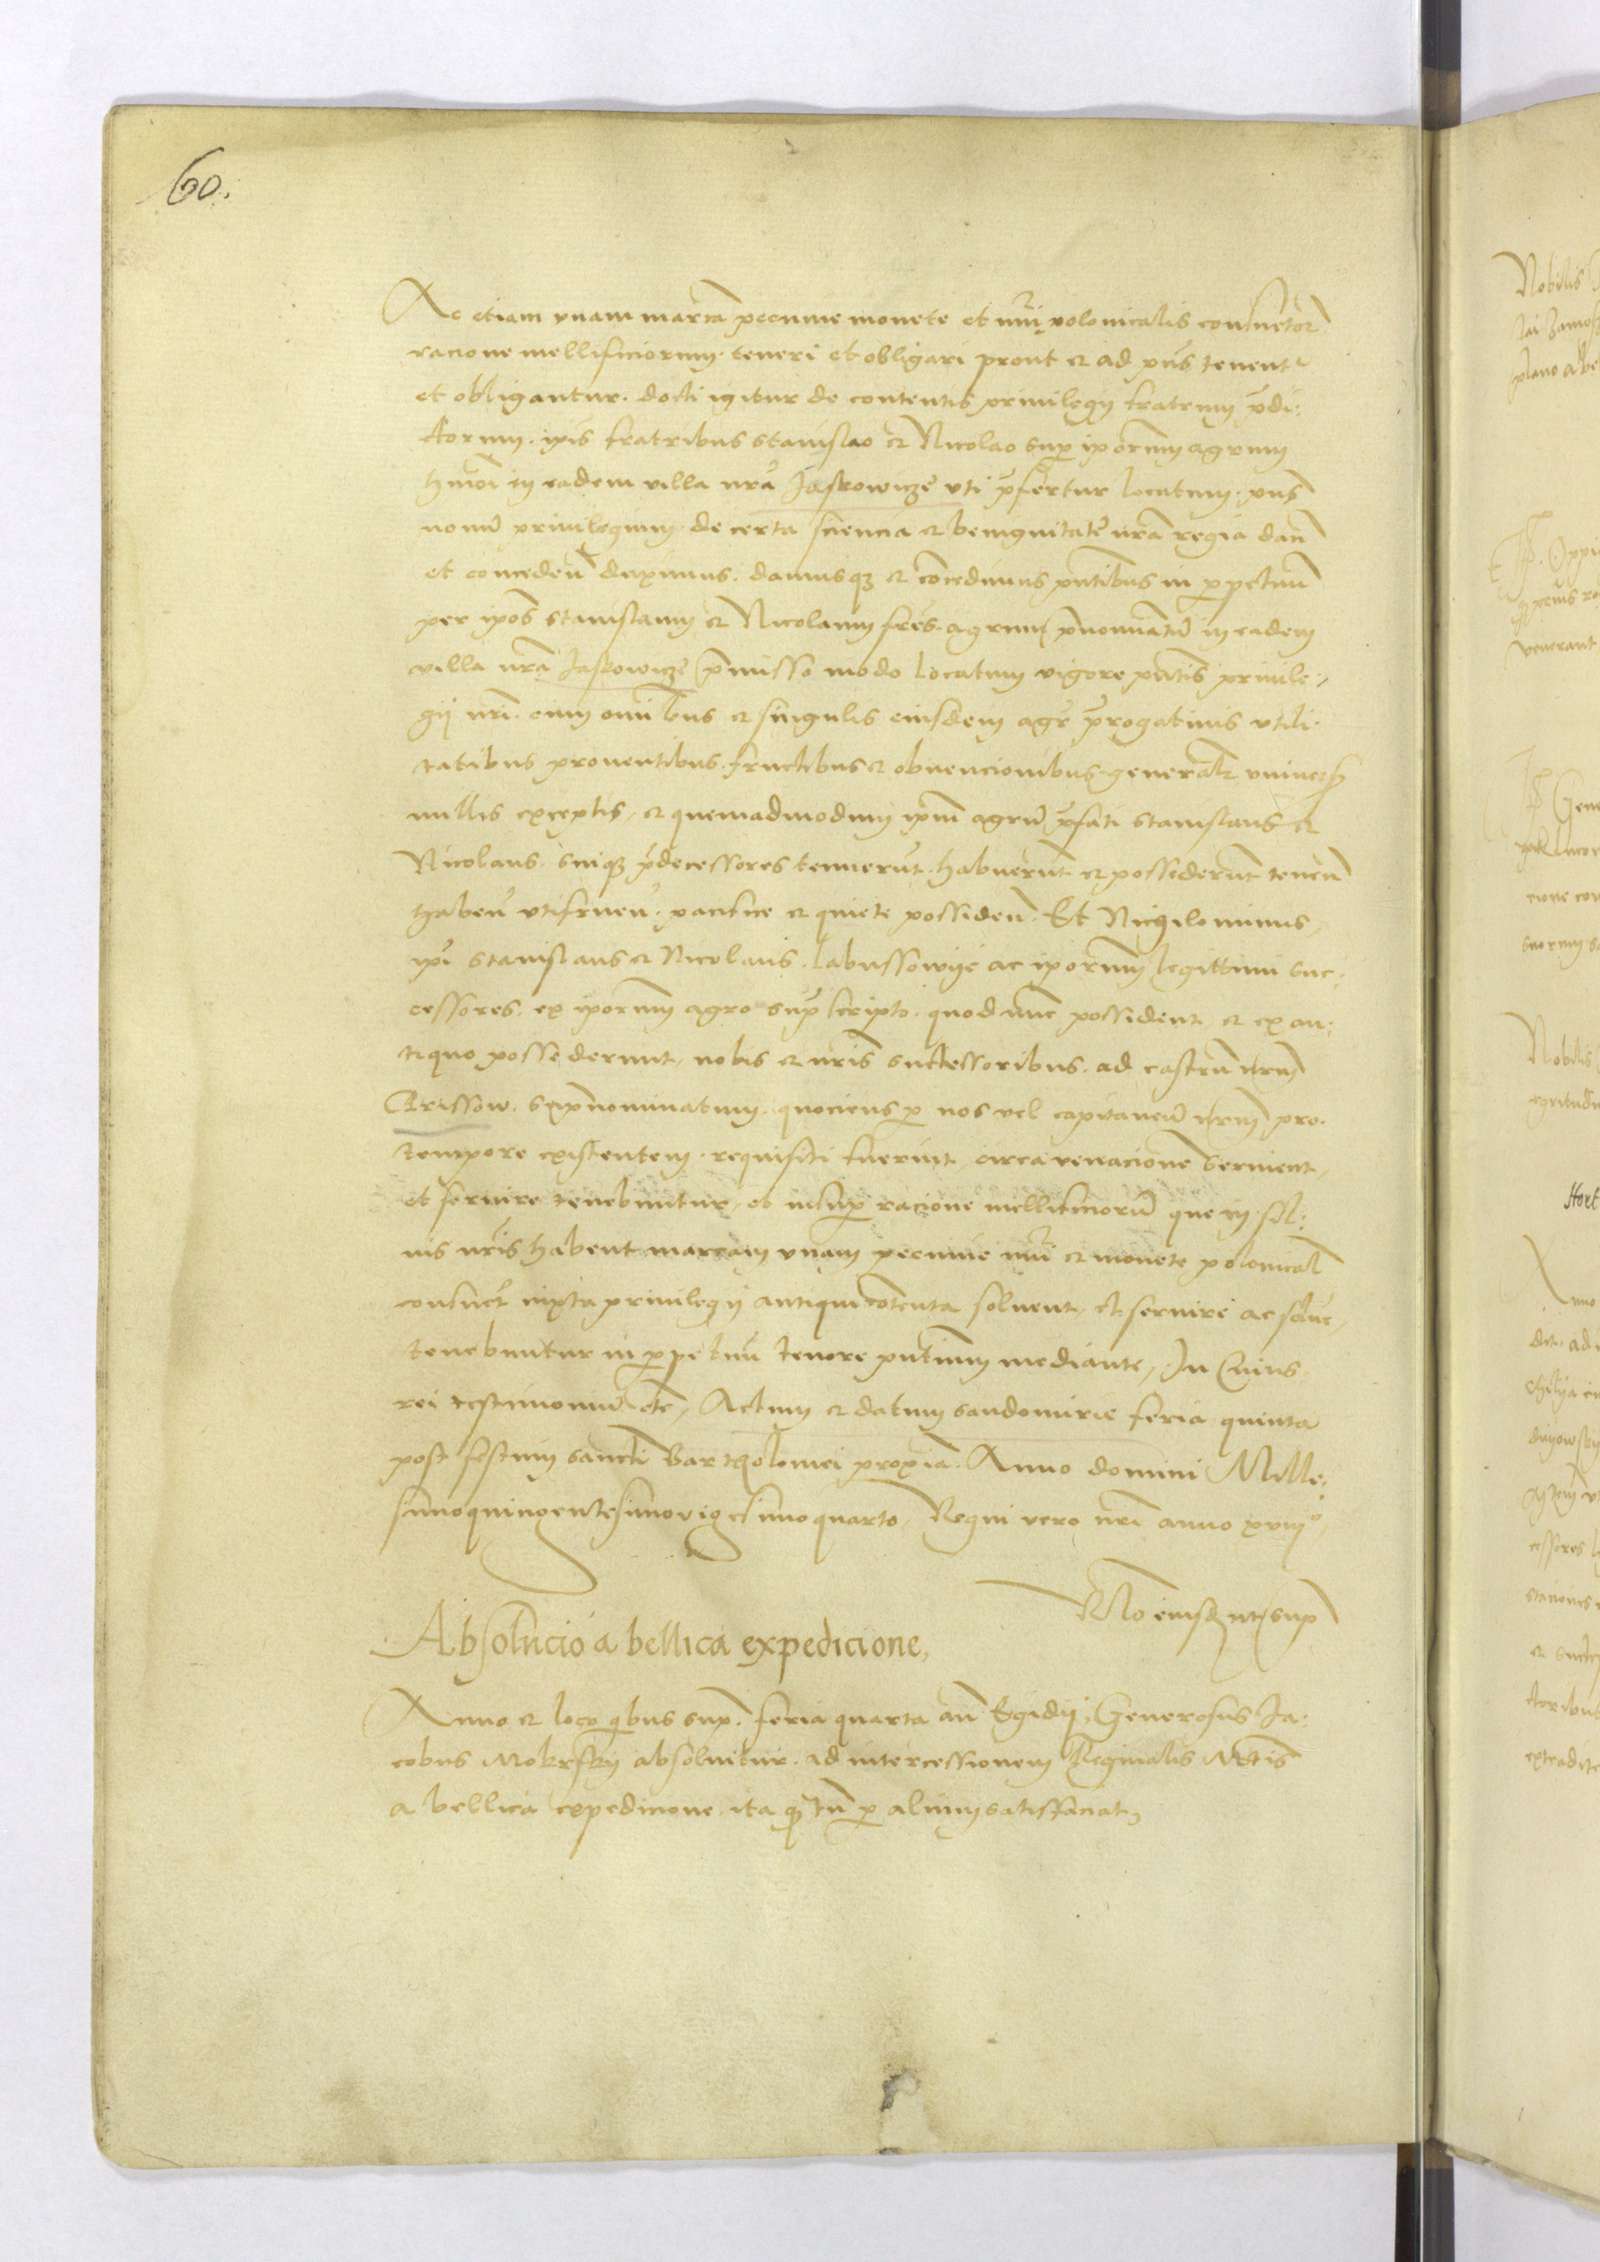 60.
Ac etiam vnam marcā pecunie monete et nūi polonicalis consuetor
racione mellificiorum teneri et obligari prout & ad pn̄s tenentr
et obligantur. docti igitur de contentis priuilegij fratrum p̄di:
ctorum. ip̄is fratribus Stanislao & Nicolao sup ip̄orum agrum
hm̄oi in eadem villa nr̄a Jaskowicze vti p̄fertur locatum. pn̄s
nouū priuilegium de certa sciencia & benignitate nr̄a regia dan̄
et conceden̄ duximus. damusqz & concedimus pn̄tibus in perpetuū
per ip̄os Stanislaum & Nicolaum fr̄es. agrum p̄nominatū in eadem
villa nr̄a Jaskowicze p̄misso modo locatum vigore pn̄tis priuile:
gij nr̄i. cum omībus & singulis eiusdem agri p̄rogatiuis vtili:
tatibus prouentibus. fructibus & obuencionibus generalr vniuersis
nullis exceptis, & quemadmodum ip̄m agrū p̄fati Stanislaus &
Nicolaus. suiqz p̄decessores tenuerūt. habuerūt & possederūt tenen̄
haben̄ vtifruen̄. pacifice & quiete possiden̄. Et Nichilominus,
ip̄i Stanislaus & Nicolaus. Labussowije ac ip̄orum legittimi suc:
cessores. ex ip̄orum agro sup̄scripto. quod nunc possident & ex an:
tiquo possederunt, nobis & nr̄is successoribus. ad castrū nr̄m
Crissow. sup̄nominatum. quociens p nos vel capitaneū nr̄m pro.
tempore existentem. requisiti fuerint, circa venacione seruient,
et seruire tenebuntur, et insup racione mellificiorū que in sil:
uis nr̄is habent marcam vnam pecunie nūi & monete polonical
consuet iuxta priuilegij antiqui cōtenta soluent, et seruire ac soluere
tenebuntur in perpetuū tenore pn̄tium mediante, In Cuius
rei testimoniū etc, Actum & datum Sandomirie feria quinta
post festum sancti Bartholomei proxīa. Anno domini Mille:
simoquingentesimovigesimoquarto, Regni vero nr̄i anno xviijo
Rlo eiusdem ut sup
Absolucio a bellica expedicione,
Anno & loco qibus sup. feria quarta an̄ Egidij, Generosus Ja:
cobus Mokrskij absoluitur. ad intercessionem Reginalis Mtis
a bellica expedicione. ita q tn̄ p alium satisfaciat,